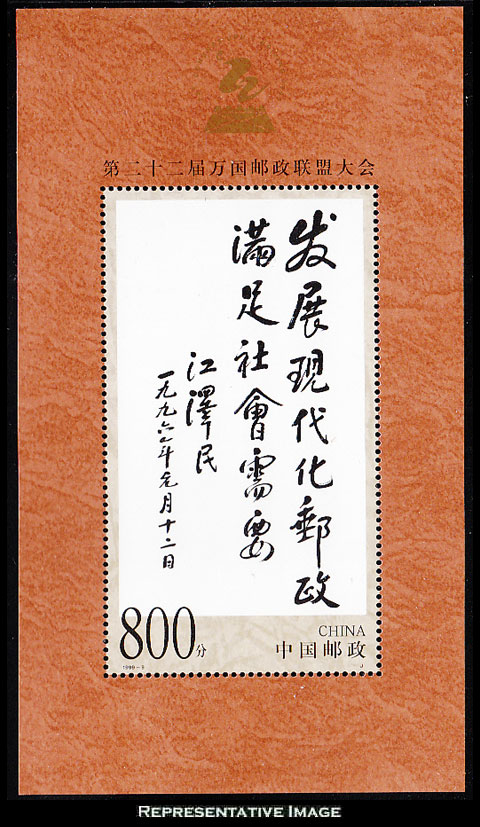 第二十二届万国邮政联盟大会
发展现代化郵政
满足社會需要
江澤民
一九九六年元月十二日
800分
CHINA
中国邮政
1999-9
J
REPRESENTATIVE IMAGE